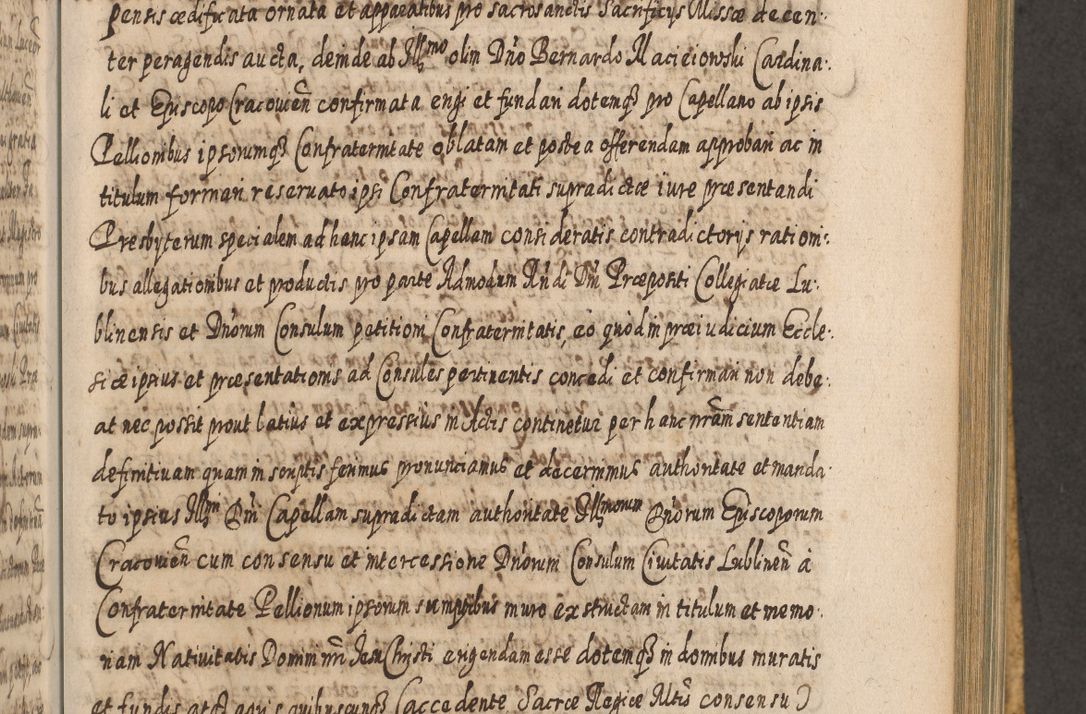 pensis ædificata ornata et apparatibus pro sacrosanctis Sacrificijs Missæ decen-
ter peragendis aucta, deinde ab Illmo olim Dno Bernardo Macieiowski Cardina-
li et Episcopo Cracovien confirmata erigi et fundari dotemq3 pro Capellano ab ipsis
Pellionibus ipsorumq3 Confraternitate oblatam et postea offerendam approbari ac in
titulum formari reservato ipsi Confraternitati supradictæ iure præsentandi
Presbyterum specialem ad hanc ipsam Capellam consideratis contradictorijs rationi-
bus allegationibus et productis pro parte Admodum Rndi Dni Præpositi Collegiatæ Lu-
blinensis et Dnorum Consulum petitioni Confraternitatis, eo quod in præiudicium Eccle-
siæ ipsius et præsentationis ad Consules pertinentis concedi et confirmari non debe-
at nec possit prout latius et expressius in Actis continetur per hanc nram sententiam
definitivam quam in scriptis ferimus pronunciamus et decernimus authoritate et manda-
to ipsius Illmi Dni Capellam supradictam authoritate Illmorum Dnorum Episcoporum
Cracovien cum consensu et intercessione Dnorum Consulum Civitatis Lublinen à
Confraternitate Pellionum ipsorum sumptibus muro exstructam in titulum et memo-
riam Nativitatis Domini nri Jesu Christi erigendam esse dotemq3 in domibus muratis
et fundis atq3 agris quibuscunq3 (accedente Sacræ Regiæ Mttis consensu)